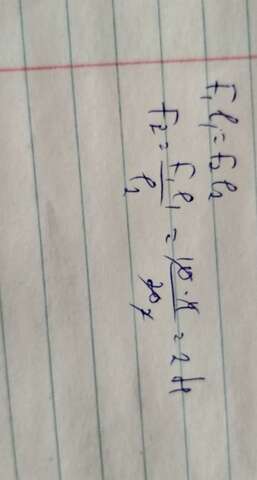 F₁ l₁ = F₂ l₂
F₂ = F₁ l₁ / l₂ = 10 · 4 / 20 = 2 H